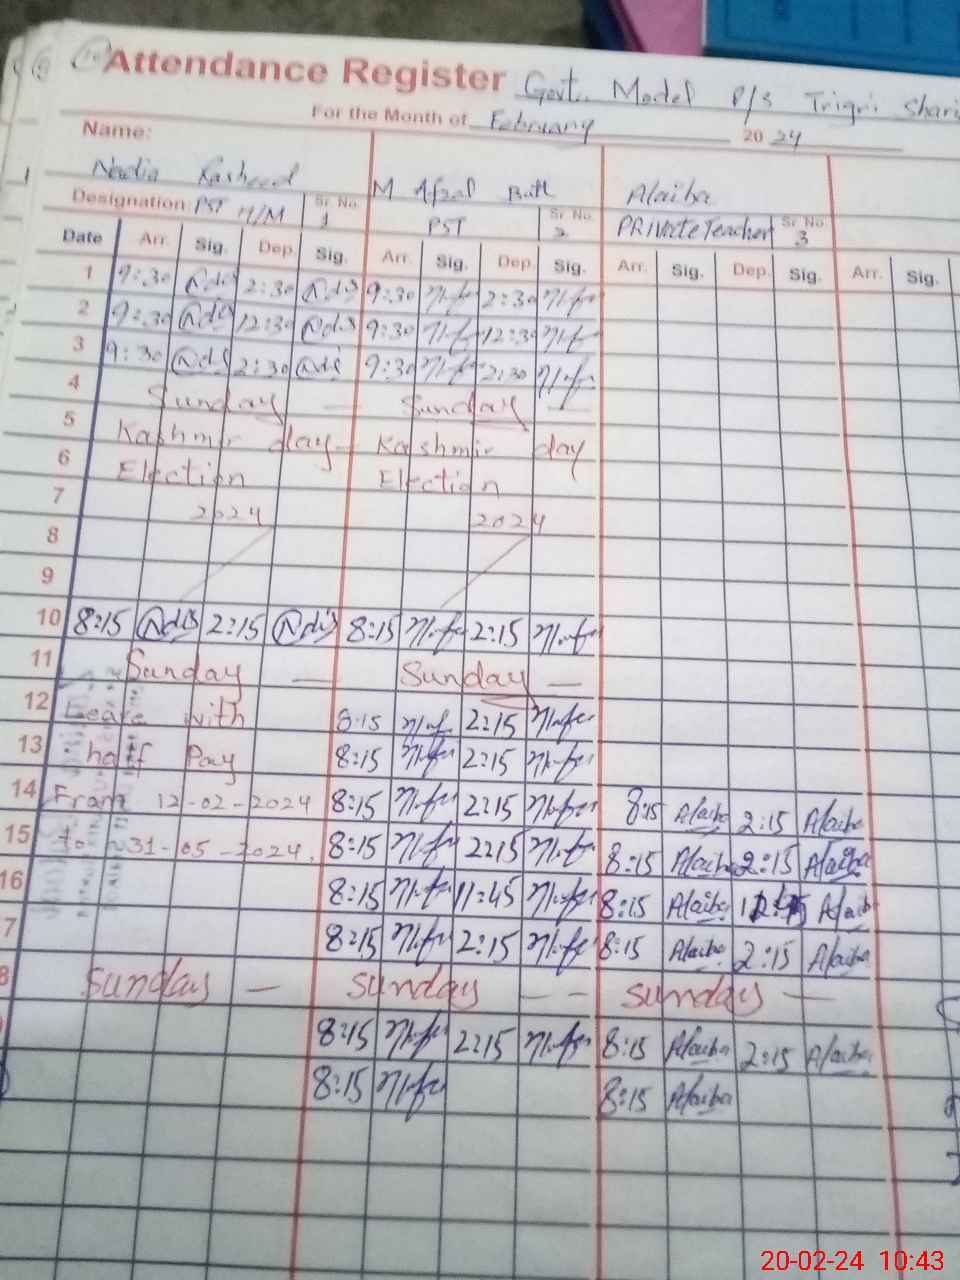 Attendance Register Govt. Model P/S Trigri Shari
For the Month of February 20 24
Name:
Nadia Rasheed M Afzal Butt Alaiba
Designation: PST H/M Sr. No. 1 PST Sr. No. 2 PRivate Teacher Sr. No. 3
Date Arr. Sig. Dep. Sig. Arr. Sig. Dep. Sig. Arr. Sig. Dep. Sig. Arr. Sig.
1 9:30 2:30 9:30 2:30
2 9:30 12:30 9:30 12:30
3 9:30 2:30 9:30 2:30
4 Sunday — Sunday —
5 Kashmir day — Kashmir day
6 Election Election
7 2024 2024
8
9
10 8:15 2:15 8:15 2:15
11 Sunday — Sunday —
12 Leave with 8:15 2:15
13 half Pay 8:15 2:15
14 From 12-02-2024 8:15 2:15 8:15 Alaiba 2:15 Alaiba
15 to 31-05-2024. 8:15 2:15 8:15 Alaiba 2:15 Alaiba
16 8:15 11:45 8:15 Alaiba Alaiba
7 8:15 2:15 8:15 Alaiba 2:15 Alaiba
8 Sunday — Sunday — - Sunday —
8:15 2:15 8:15 Alaiba 2:15 Alaiba
8:15 8:15 Alaiba
20-02-24 10:43